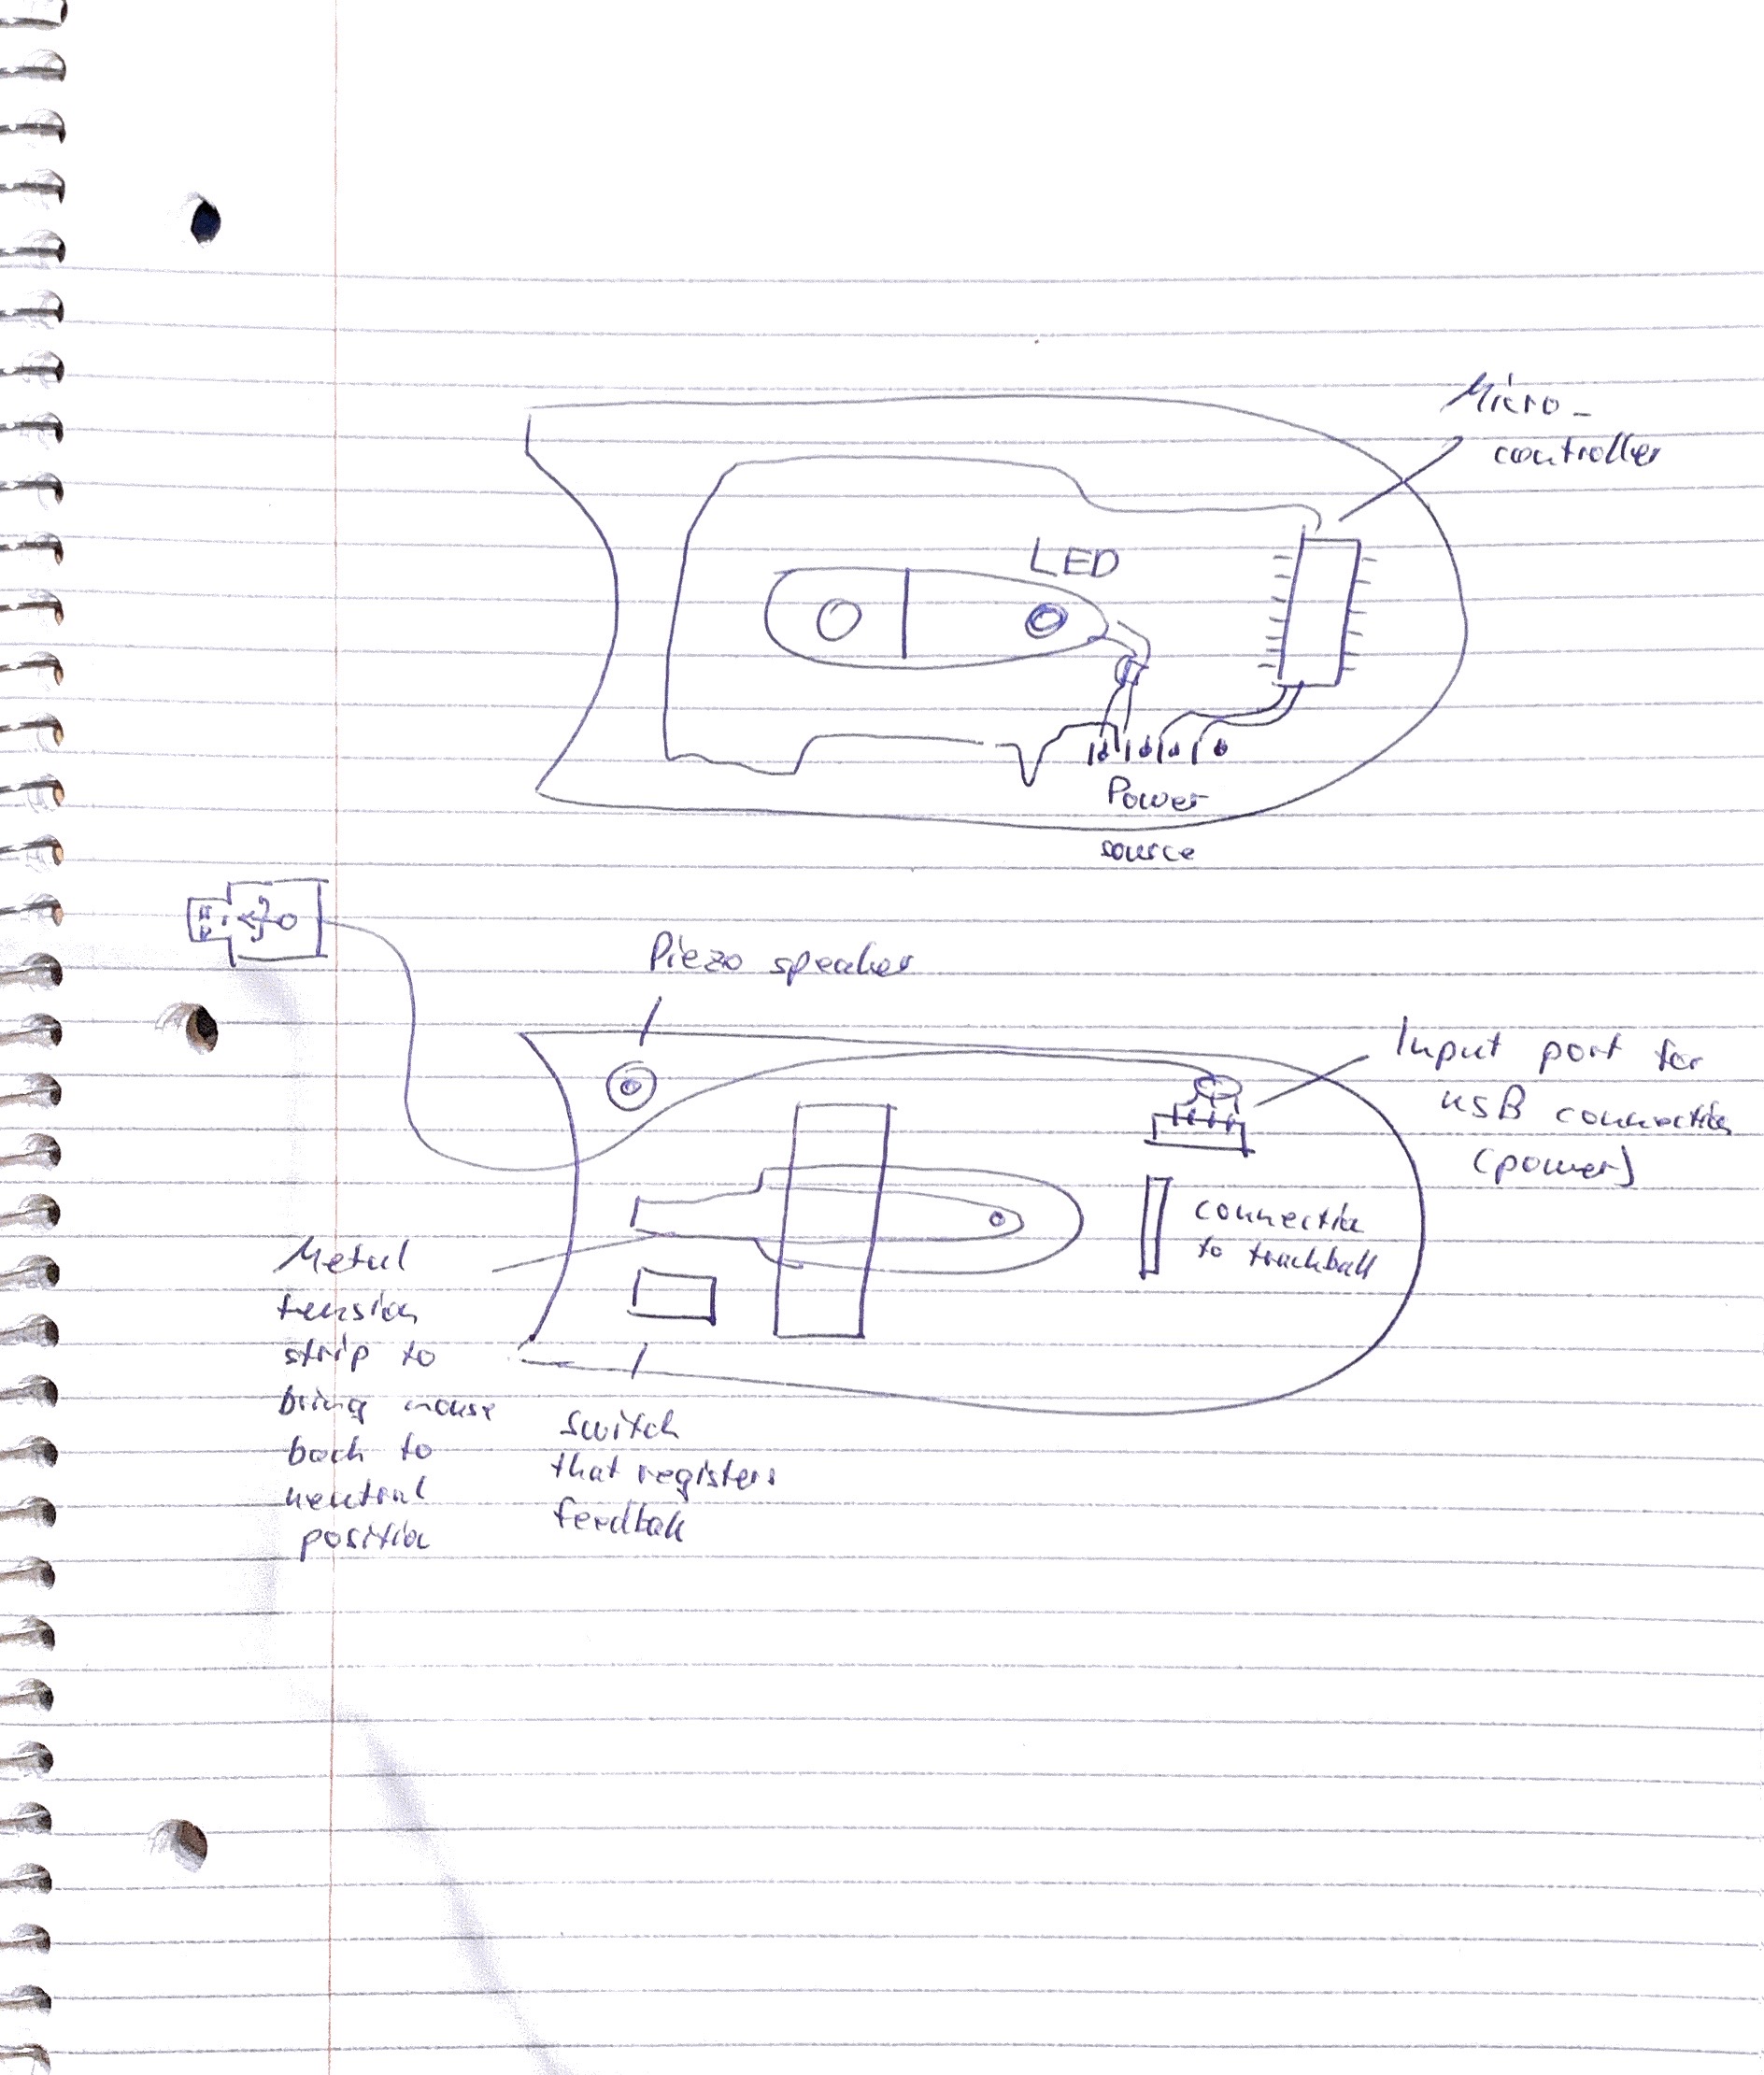 Micro-
controller
LED
Power
source
Piezo speaker
Input port for
USB connection
(power)
connection
to trackball
Metal
tension
strip to
bring mouse
back to
neutral
position
switch
that registers
feedback